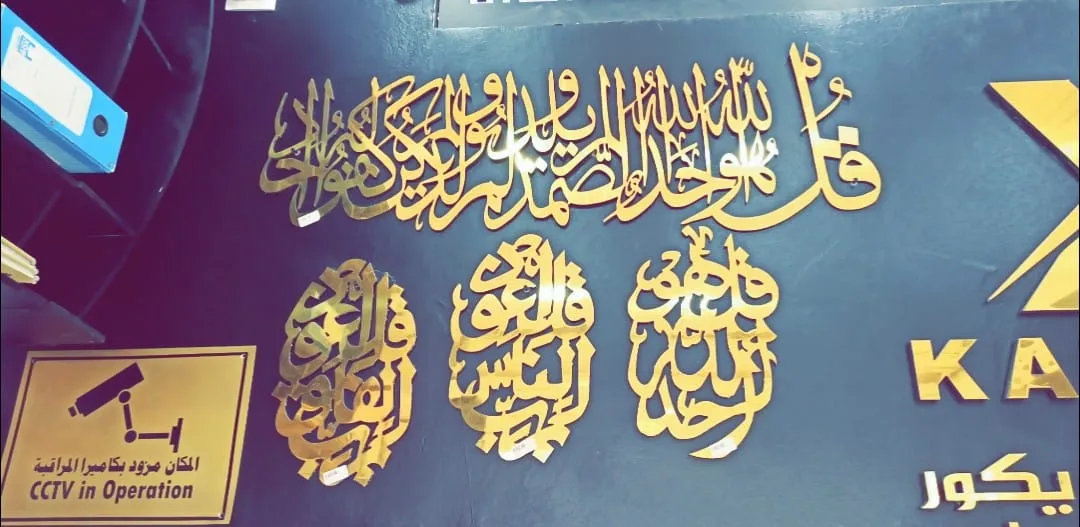 قل هو الله أحد الله الصمد لم يلد ولم يولد ولم يكن له كفوا أحد
قل هو الله أحد
قل أعوذ برب الناس
قل أعوذ برب الفلق
KA
يكور
المكان مزود بكاميرا المراقبة
CCTV in Operation